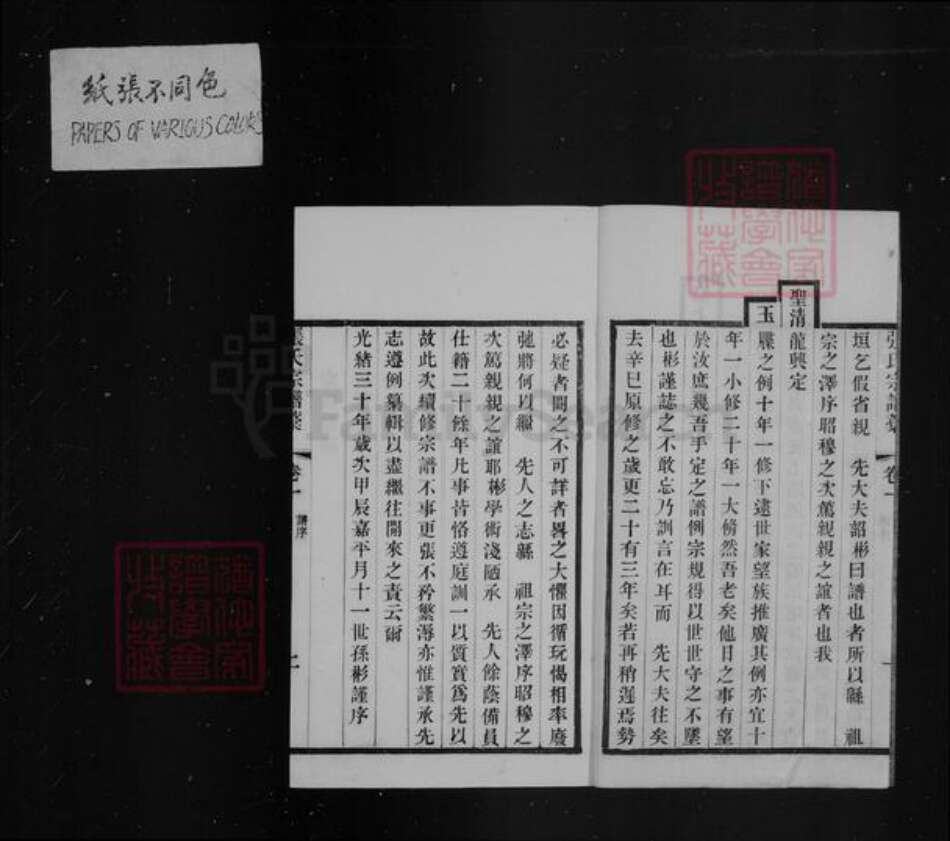 紙張不同色
PAPERS OF VARIOUS COLORS
張氏宗譜 卷一 一
垣乞假省親 先大夫詔彬曰譜也者所以緜 祖
宗之澤序昭穆之次篤親親之誼者也我
聖清龍興定
玉牒之例十年一修下逮世家望族推廣其例亦宜十
年一小修二十年一大脩然吾老矣他日之事有望
於汝庶幾吾手定之譜例宗規得以世世守之不墜
也彬謹誌之不敢忘乃訓言在耳而 先大夫往矣
去辛巳原修之歲更二十有三年矣若再稍遲焉勢
必疑者闕之不可詳者畧之大懼因循玩愒相率廢
弛將何以繼 先人之志緜 祖宗之澤序昭穆之
次篤親親之誼耶彬學術淺陋承 先人餘蔭備員
仕籍二十餘年凡事皆恪遵庭訓一以質實爲先以
故此次續修宗譜不事更張不矜繁縟亦惟謹承先
志遵例纂輯以盡繼往開來之責云爾
光緒三十年歲次甲辰嘉平月十一世孫彬謹序
張氏宗譜 卷一 譜序 二
FamilySearch